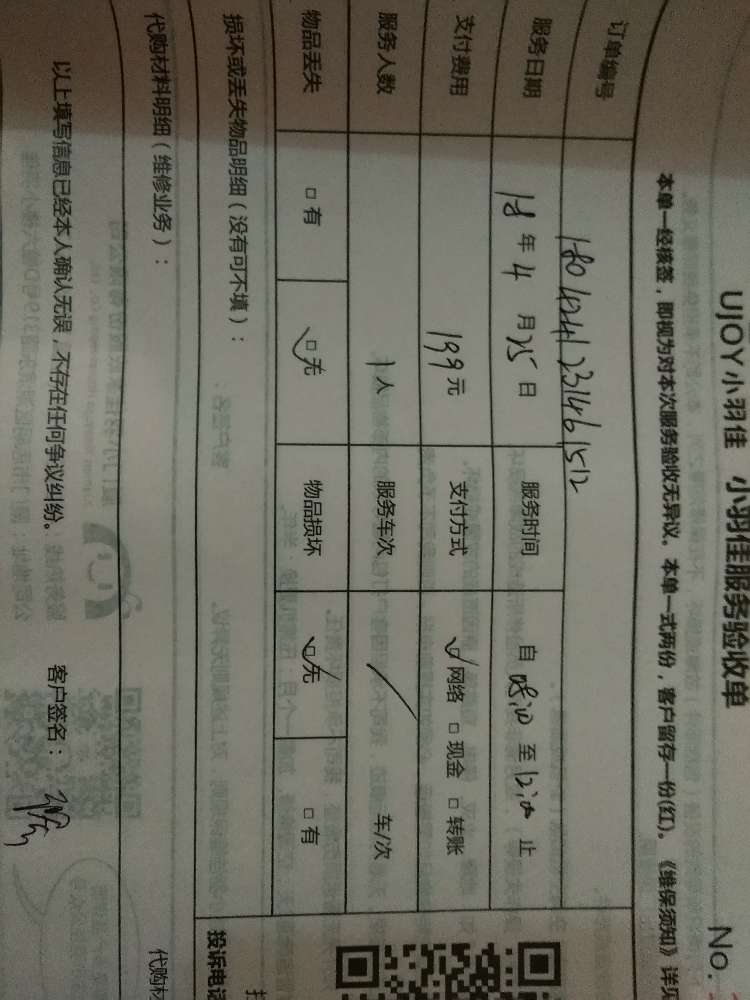 UJOY小羽佳 小羽佳服务验收单
No.
本单一经核签，即视为对本次服务验收无异议。本单一式两份，客户留存一份(红)。《维保须知》详
订单编号 1804241231461512
服务日期 18年4月25日 服务时间 自 至12:00止
支付费用 199元 支付方式 ☑网络 □现金 □转账
服务人数 1人 服务车次 / 车/次
物品丢失 □有 ☑无 物品损坏 ☑无 □有
损坏或丢失物品明细（没有可不填）：
投诉电话
代购材料明细（维修业务）：
代购材
以上填写信息已经本人确认无误，不存在任何争议纠纷。 客户签名：